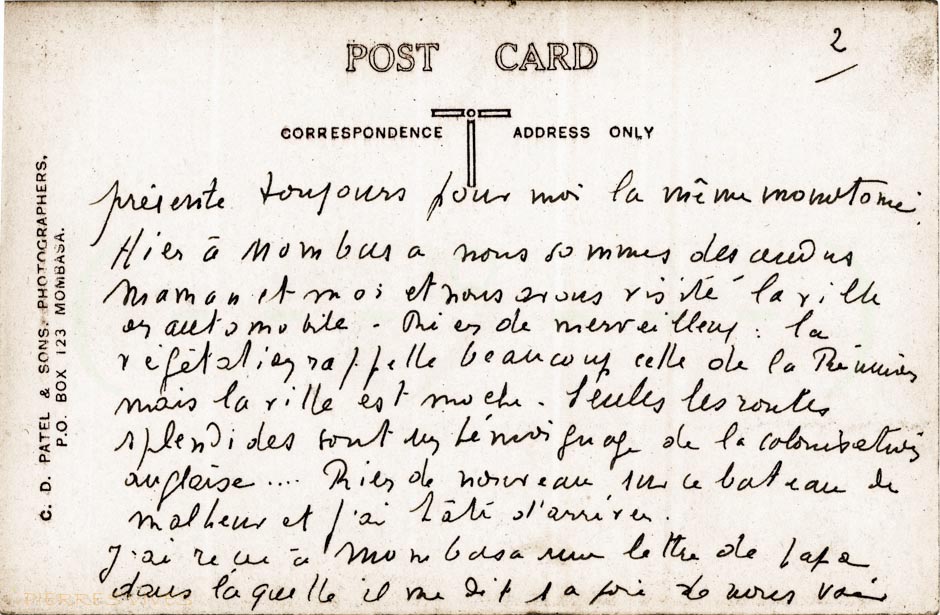 2
POST CARD
CORRESPONDENCE ADDRESS ONLY
C. D. PATEL & SONS. PHOTOGRAPHERS,
P.O. BOX 123 MOMBASA.
présente toujours pour moi la même monotonie.
Hier à Mombasa nous sommes descendus
Maman et moi et nous avons visité la ville
en automobile - Rien de merveilleux : la
végétation rappelle beaucoup celle de la Réunion
mais la ville est moche. Seules les routes
splendides sont un témoignage de la colonisation
anglaise.... Rien de nouveau sur ce bateau de
malheur et j'ai hâte d'arriver.
J'ai reçu à Mombasa une lettre de Papa
dans laquelle il me dit sa joie de nous voir
PIERRE